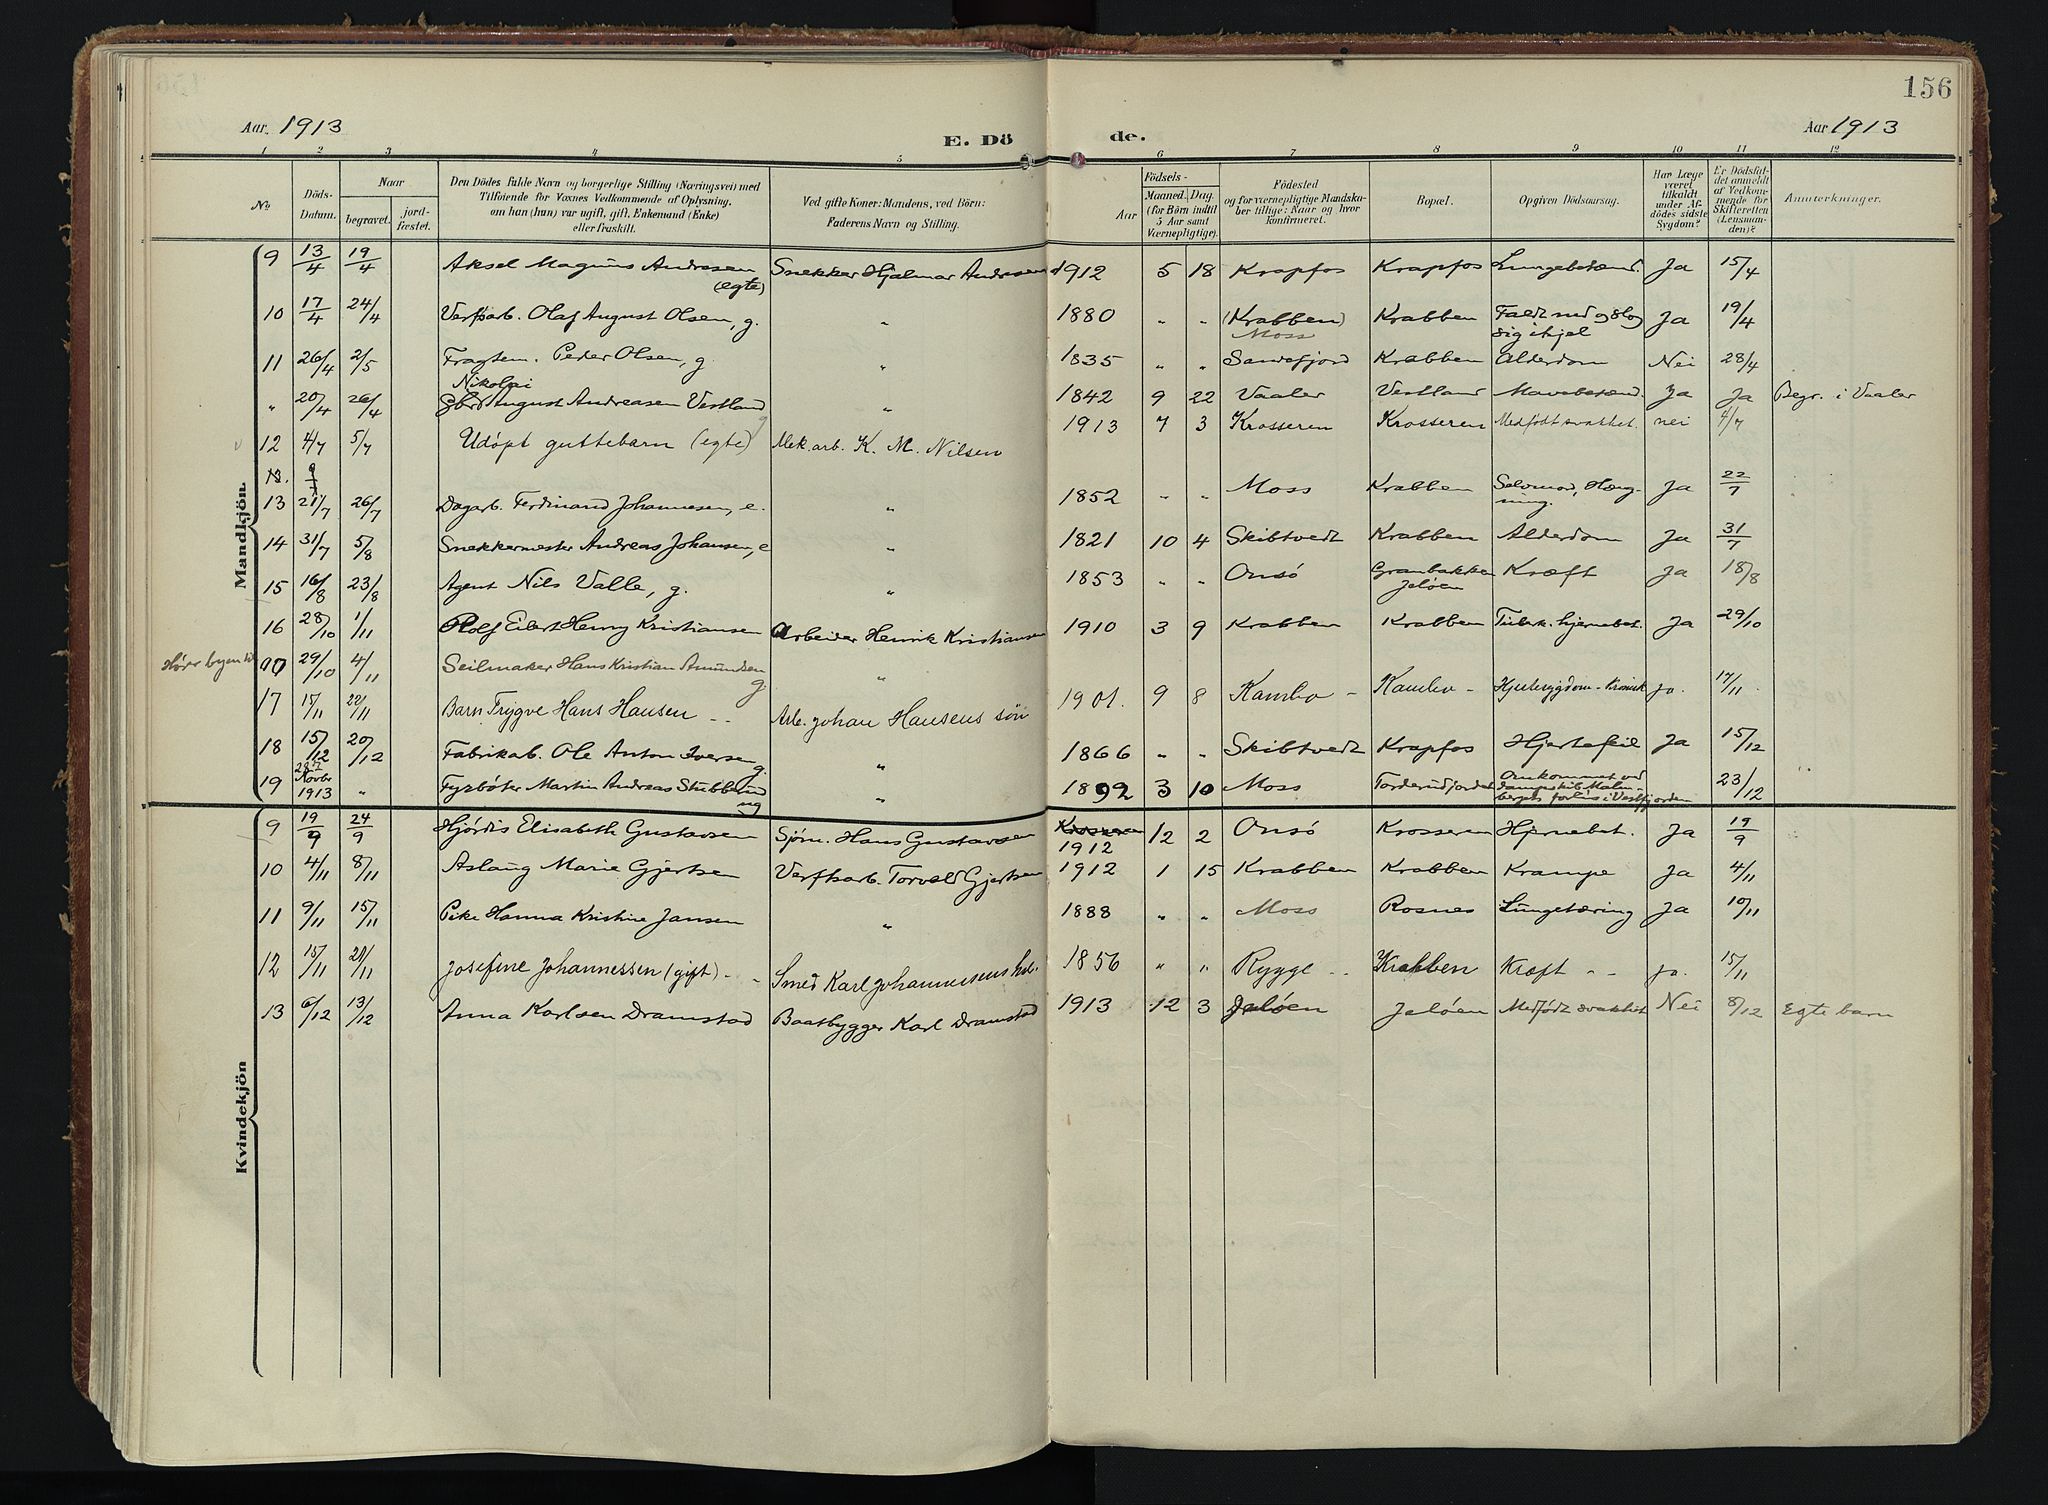 156
Aar. 1913
E. Dö
de.
Aar 1913
1 2 3 4 5 6 7 8 9 10 11 12
No
Döds-Datum.
Naar
begravet.
jord-fæstet.
Den Dödes fulde Navn og borgerlige Stilling (Næringsvei) med
Tilföiende for Voxnes Vedkommende af Oplysning,
om han (hun) var ugift, gift, Enkemand (Enke)
eller fraskilt.
Ved gifte Koner: Mandens, ved Börn:
Faderens Navn og Stilling.
Aar
Födsels-
Maaned. Dag.
(for Börn indtil
5 Aar samt
Værnepligtige).
Födested
og for værnepligtige Mandska-
ber tillige: Naar og hvor
konfirmeret.
Bopæl.
Opgiven Dödsaarsag.
Har Læge
været
tilkaldt
under Af-
dödes sidste
Sygdom?
Er Dödsfal-
det anmeldt
af Vedkom-
mende for
Skifteretten
(Lensman-
den)?
Anmærkninger.
Mandkjön.
9 13/4 19/4 Aksel Magnus Andresen (egte) Snekker Hjalmar Andresen 1912 5 18 Krapfos Krapfos Lungebetænd. Ja 15/4
10 17/4 24/4 Verftsarb. Olaf August Olsen, g. " 1880 " " (Krabben) Moss Krabben Faldt ned og slog sig ihjel Ja 19/4
11 26/4 2/5 Fragtem. Peder Olsen, g " 1835 " " Sandefjord Krabben Alderdom Nei 28/4
Nikolai
" 20/4 26/4 August Andreasen Vestland g " 1842 9 22 Vaaler Vestland Mavebetænd. Ja Ja Begr. i Vaaler
12 4/7 5/7 Udöpt guttebarn (egte) Mek. arb. K. M. Nilsen 1913 7 3 Krosseren Krosseren Medfödt svakhet. nei 4/7
13 21/7 26/7 Dagarb. Ferdinand Johannesen, e. " 1852 " " Moss Krabben Selvmord, Hængning. Ja 22/7
14 31/7 5/8 Snekkermester Andreas Johansen, e " 1821 10 4 Skibtvedt Krabben Alderdom Ja 31/7
15 16/8 23/8 Agent Nils Valle, g. " 1853 " " Onsö Granbakken Jelöen Kræft Ja 18/8
16 28/10 1/11 Rolf Eilert Henry Kristiansen Arbeider Henrik Kristiansen 1910 3 9 Krabben Krabben Tuberk. hjernebet. Ja 29/10
Hörer byen til 29/10 4/11 Seilmaker Hans Kristian Amundsen g "
17 15/11 20/11 Barn Trygve Hans Hansen -- Arb. Johan Hansens sön 1901. 9 8 Kambo - Kambo - Hjertesygdom - Kronisk ja. 17/11.
18 15/12 20/12 Fabrikab. Ole Anton Iversen g. " 1866 " " Skibtvedt Krapfos Hjertefeil Ja 15/12
19 Novbr 1913 " Fyrböter Martin Andreas Stubberud ug " 1892 3 10 Moss Torderudjordet Omkommet ved dampskib Malmbergets forlis i Vestfjorden 23/12
Kvindekjön
9 19/9 24/9 Hjördis Elisabeth Gustavsen Sjöm. Hans Gustavsen Krosseren 1912 12 2 Onsö Krosseren Hjernebet. Ja 19/9
10 4/11 8/11 Aslaug Marie Gjertsen Verftsarb. Torvald Gjertsen 1912 1 15 Krabben Krabben Krampe Ja 4/11
11 9/11 15/11 Pike Hanna Kristine Jansen " 1888 " " Moss Rosnes Lungetæring Ja 10/11
12 15/11 21/11 Josefine Johannessen (gift) -- Smed Karl Johannessens hst. 1856 " " Rygge -- Krabben Kræft -- ja. 15/11
13 6/12 13/12 Anna Karlsen Dramstad Baatbygger Karl Dramstad 1913 12 3 Jelöen Jelöen Medfödt svakhet Nei 8/12 Egte barn